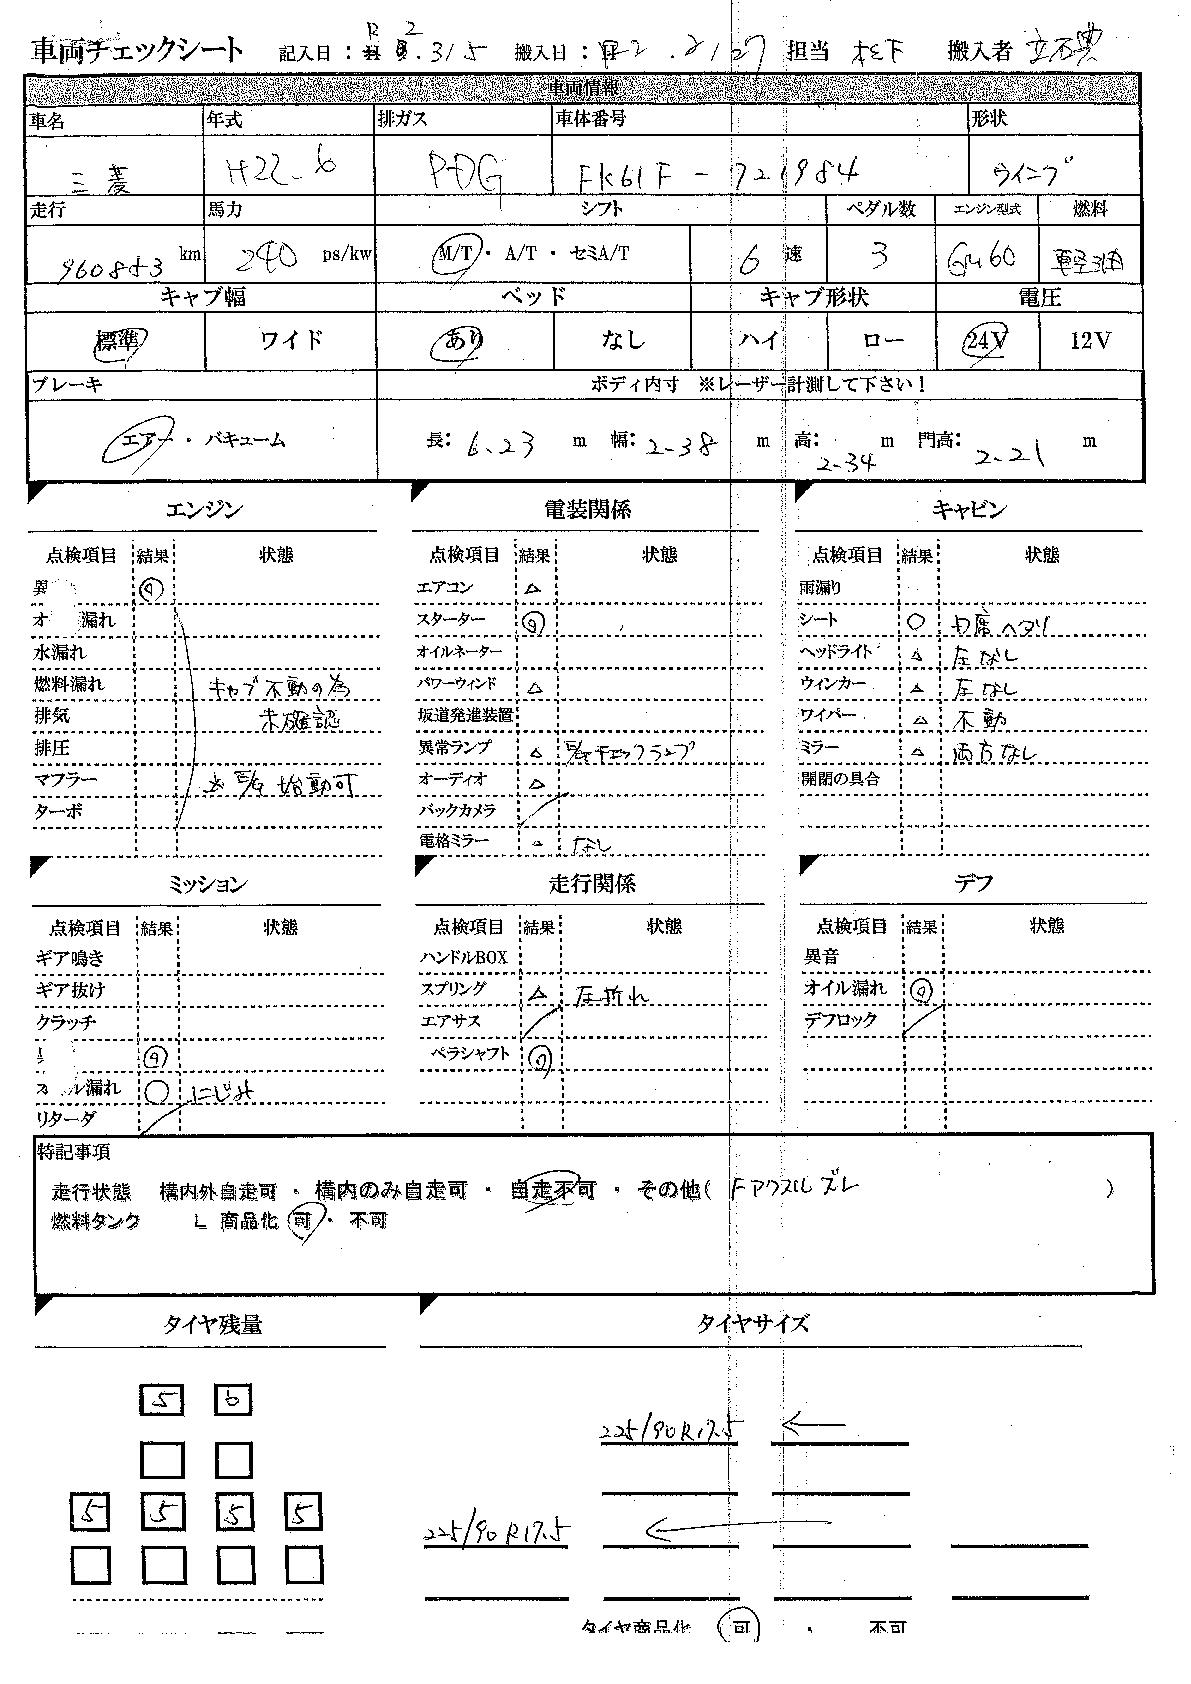 車両チェックシート 記入日： R 2.3/5 搬入日： 2.2/27 担当 松下 搬入者
車両情報
車名 年式 排ガス 車体番号 形状
三菱 H22-6 PDG FK61F-721984 ウイング
走行 馬力 シフト ペダル数 エンジン型式 燃料
960843 km 240 ps/kw M/T ・ A/T ・ セミA/T 6 速 3 6M60 軽油
キャブ幅 ベッド キャブ形状 電圧
標準 ワイド あり なし ハイ ロー 24V 12V
ブレーキ ボディ内寸 ※レーザー計測して下さい！
エアー ・ バキューム 長: 6.23 m 幅: 2.38 m 高: 2.34 m 門高: 2.21 m
エンジン 電装関係 キャビン
点検項目 結果 状態 点検項目 結果 状態 点検項目 結果 状態
異 ◎ エアコン △ 雨漏り
オ 漏れ スターター ◎ シート ○ 内席ヘタリ
水漏れ オイルネーター ヘッドライト △ 左なし
燃料漏れ キャブ不動の為 パワーウィンド △ ウィンカー △ 左なし
排気 未確認 坂道発進装置 ワイパー △ 不動
排圧 異常ランプ △ E/Gチェックランプ ミラー △ 両方なし
マフラー ※E/G始動可 オーディオ △ 開閉の具合
ターボ バックカメラ
電格ミラー △ なし
ミッション 走行関係 デフ
点検項目 結果 状態 点検項目 結果 状態 点検項目 結果 状態
ギア鳴き ハンドルBOX 異音
ギア抜け スプリング △ 左折れ オイル漏れ ◎
クラッチ エアサス デフロック
◎ ペラシャフト ◎
ル漏れ ○ にじみ
リターダ
特記事項
走行状態 構内外自走可 ・ 構内のみ自走可 ・ 自走不可 ・ その他( Fアクスルズレ )
燃料タンク L 商品化 可 ・ 不可
タイヤ残量 タイヤサイズ
5 6
225/90R17.5 ←
5 5 5 5
225/90R17.5 ←
タイヤ商品化 可 ・ 不可